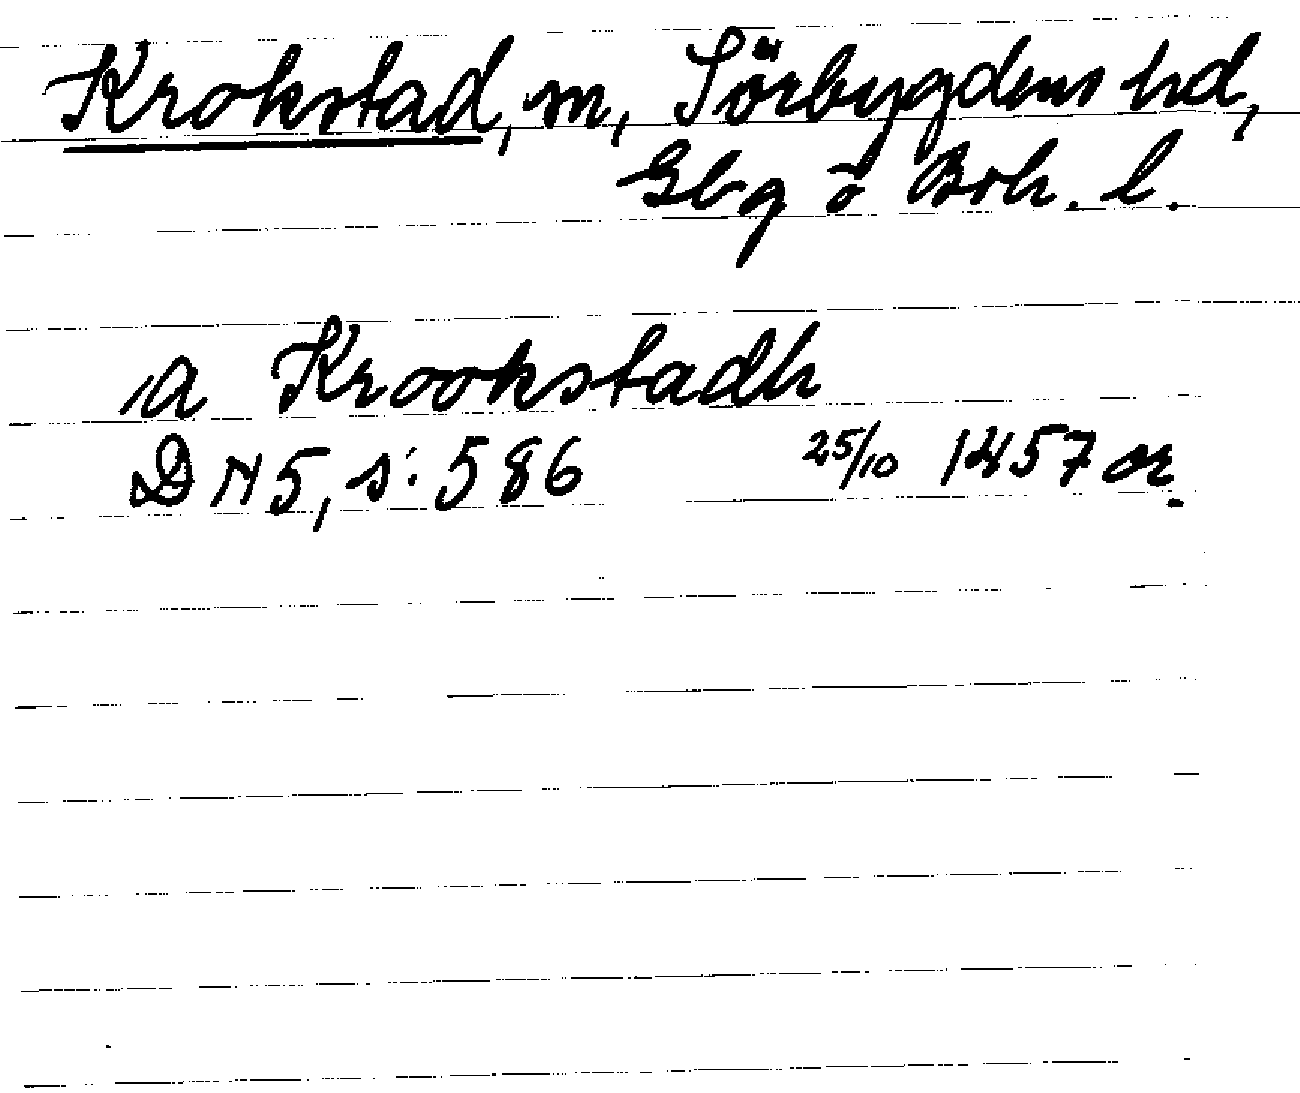 Krokstad, sn, Sörbygdens hd,
Gbg o Boh. l.
a Krookstadh
DN 5, s: 586 25/10 1457 or.